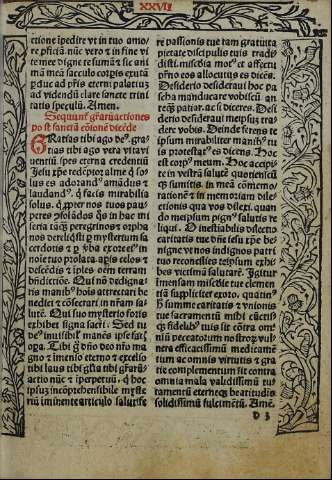 XXVII
ctione ĩpedire vt in tuo amo/
re ꝑficiã. nũc vero ⁊ in fine vi
te mee digne te sumã ⁊ sic ani
mã meã sacculo corpis exutã
ꝑduc ad ꝓris eterni palatiuz
ad videndũ clare sancte trini
tatis speculũ. Amen.
Sequunt᷑ grar̃ actiones
post sanctã cõione dicẽde
GRatias tibi ago beñ. gra/
tias tibi ago vera vitavi
uentiũ spes eterna credentiũ
Jesu xp̃e redẽptor alme q̃ so/
lus es adorand⁹ amãdus ⁊
laudand⁹. q̃ facis mirabilia
solus. q̃ ꝓpter nos tuos pau
peres
seria tacq̃ peregrinos ⁊ orpha
nos
cerdotis
noiẽ tuo prolata aꝑis celos ⁊
descẽdis ⁊ iples oẽm terram
bñdictiõe. Qui nõ dedignat̃
ris manib⁹ hois attrectari be
nedici ⁊ cõsecrari in nr̃am salu
tẽ. Qui suo mysterio fortis
exhibet signa sacri. Sed tu
de⁹ inuisibil' manẽs ipse facis
opa. Tibi g̃ dño deo nr̃o ma
gno ⁊ imẽnso eterno ⁊ excelso
tibi laus tibi gl'ia tibi gr̃arũ/
actio nũc ⁊ ĩ perpetuũ. q̃ hoc
ipsuz incõprehensibile myste
riũ iminente articulo salutife
re passionis tue tam gratuita
pietate discipulis tuis tradi/
disti. miscdia mot⁹ et affectu
pr̃no eos allocutus es dicẽs.
Desiderio desideraui hoc pa
scha manducare vobiscũ. an
teq̃ʒ patiar. ac si diceres. Desi
derio desideraui meipsuz tra/
dere vobis. Deinde ferens te
ipsum mirabiliter manib⁹ tu
is protestat⁹ es dicens. Hoc
est corp⁹ meum. Hoc accipi/
te in vestrã salutẽ quotiensc⁊
q̃ʒ sumitis. in meã cõmemo/
rationẽ ⁊ in memoriam dile/
ctionis qua vos dilexi. quan
do meipsum pign⁹ salutis re
liqui. O inestiabilis dilectio
caritatis tue dñe iesu xp̃e be/
nigne vt nos indignos patri
tuo reconcilies teipsum exhi/
bes victimã salutarẽ. Igitur
imensam misericordie tue clemen
tiã supplicitet exoro. quatin⁹
ꝑ summe caritatis ⁊ vnionis
tue sacramentũ mihi cũctis/
q̃ʒ fidelib⁹ tuis sit cõtra om̃
niũ peccatorum nostroꝝ vul/
nera efficacissimũ medicamẽ
tum ac omnis virtutis ⁊ gra
tie complementum sit contra
omnia mala validissimũ tu/
tamentũ eterneqʒ beatitudis
solidissimũ fulcimẽtũ. Amẽ.
D 3